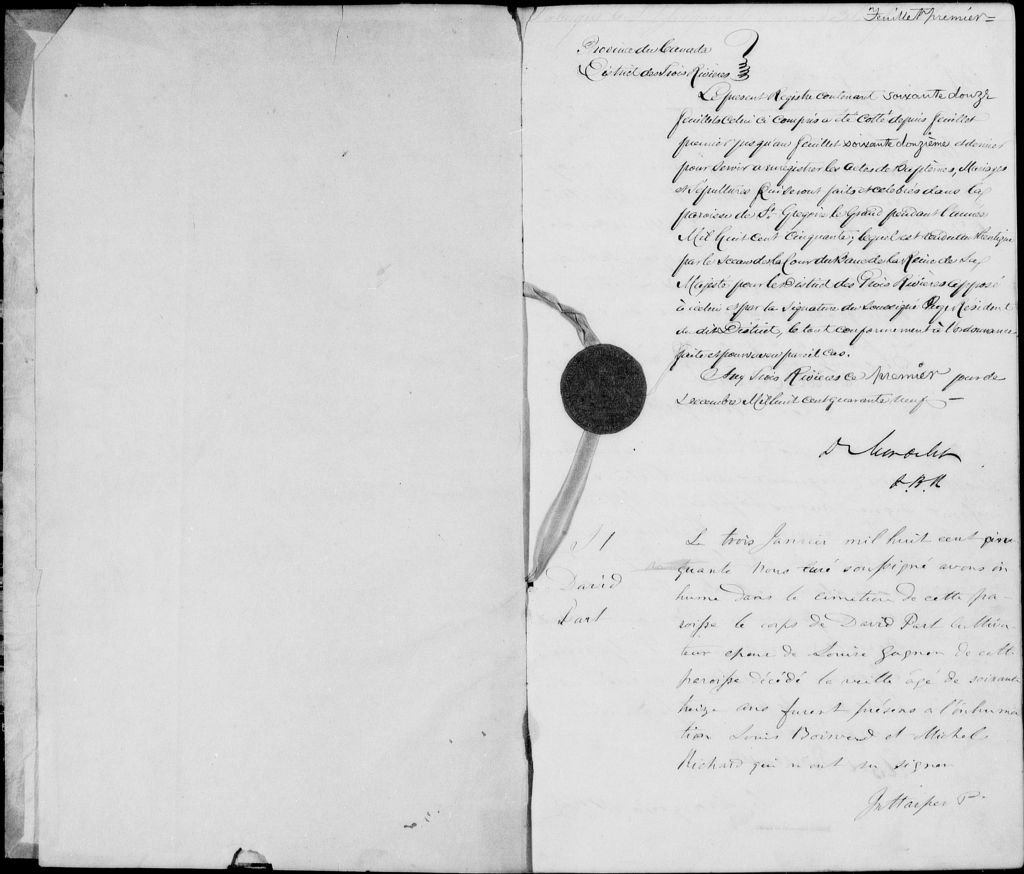 Feuillet premier =
Province du Canada
District des Trois Rivières
Le présent Registre contenant soixante douze
feuillets celui ci compris a été cotté depuis feuillet
premier jusqu'au feuillet soixante douzième et dernier
pour servir a enrégistrer les actes de Baptêmes, Mariages
et Sépultures qui seront faits et célébrés dans la
paroisse de St. Grégoire le Grand pendant l'année
Mil huit cent cinquante; lequel est rendu authentique
par le Sceau de la Cour du Banc de la Reine de Sa
Majesté pour le District des Trois Rivières apposé
à icelui et par la signature du soussigné Juge Résident
du dit District, le tout conformément à l'ordonnance
faite et pourvue en pareil cas.
Aux Trois Rivières ce premier jour de
Decembre Mil huit cent quarante neuf —
D Mondelet
S 1
David
Part
Le trois Janvier mil huit cent cin
quante Nous curé soussigné avons in
humé dans le cimetière de cette pa-
roisse le corps de David Part cultiva
teur epoux de Louise Gagnon de cette
paroisse décédé la veille agé de soixante
ans furent présens a l'inhuma
tion Louis Boisverd et Michel
Richard qui n'ont su signer
Jn Harper P.